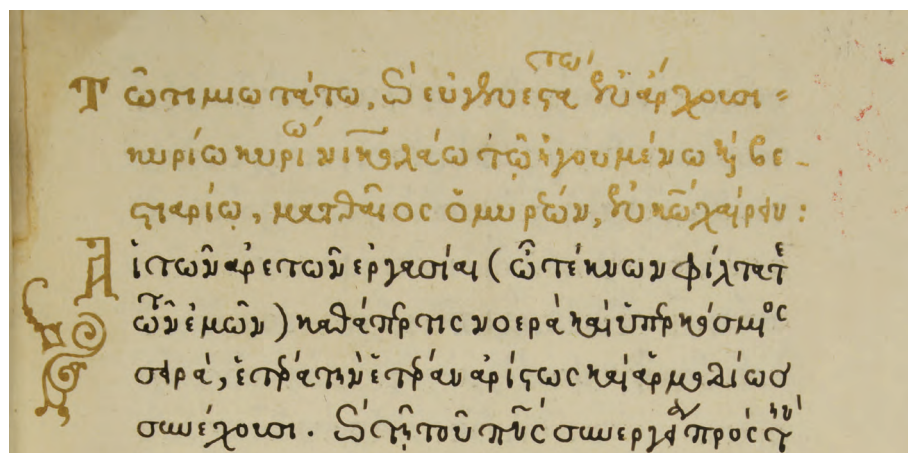 Τῶ τιμιωτάτω, καὶ εὐγενεστάτω ἐν ἄρχουσι =
κυρίω κυρίω νικολάω τῶ ἡγουμένω καὶ βε-
στιαρίω, ματθαῖος ὁ μυρέων, ἐν κῶ χαίρειν:
Αἱ τῶν ἀρετῶν ἐργασίαι (ὦ τέκνων φίλτατε
τῶν ἐμῶν) καθάπερ τις νοερὰ καὶ ὑπερκόσμιος
σειρά, ἑτέρα τὴν ἑτέραν ἀρίστως καὶ ἁρμοδίως
συνέχουσι. καὶ τῆ τοῦ πνς συνεργεία πρὸς τὴν